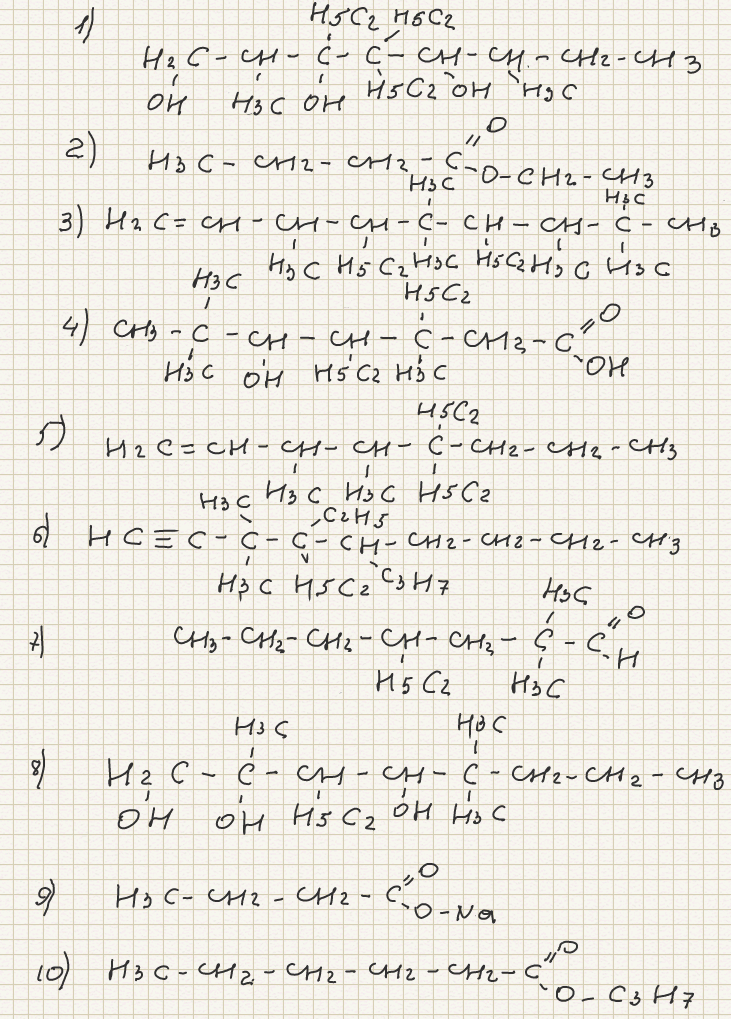 H5C2 H5C2
1) H2C - CH - C - C - CH - CH - CH2 - CH3
OH H3C OH H5C2 OH H3C
O
2) H3C - CH2 - CH2 - C
O - CH2 - CH3
H3C H3C
3) H2C = CH - CH - CH - C - CH - CH - C - CH3
H3C H5C2 H3C H5C2 H3C H3C
H3C H5C2
4) CH3 - C - CH - CH - C - CH2 - C O
H3C OH H5C2 H3C OH
H5C2
5) H2C = CH - CH - CH - C - CH2 - CH2 - CH3
H3C H3C H5C2
H3C C2H5
6) HC ≡ C - C - C - CH - CH2 - CH2 - CH2 - CH3
H3C H5C2 C3H7
H3C O
7) CH3 - CH2 - CH2 - CH - CH2 - C - C
H
H5C2 H3C
H3C H3C
8) H2C - C - CH - CH - C - CH2 - CH2 - CH3
OH OH H5C2 OH H3C
O
9) H3C - CH2 - CH2 - C
O - Na
O
10) H3C - CH2 - CH2 - CH2 - CH2 - C
O - C3H7